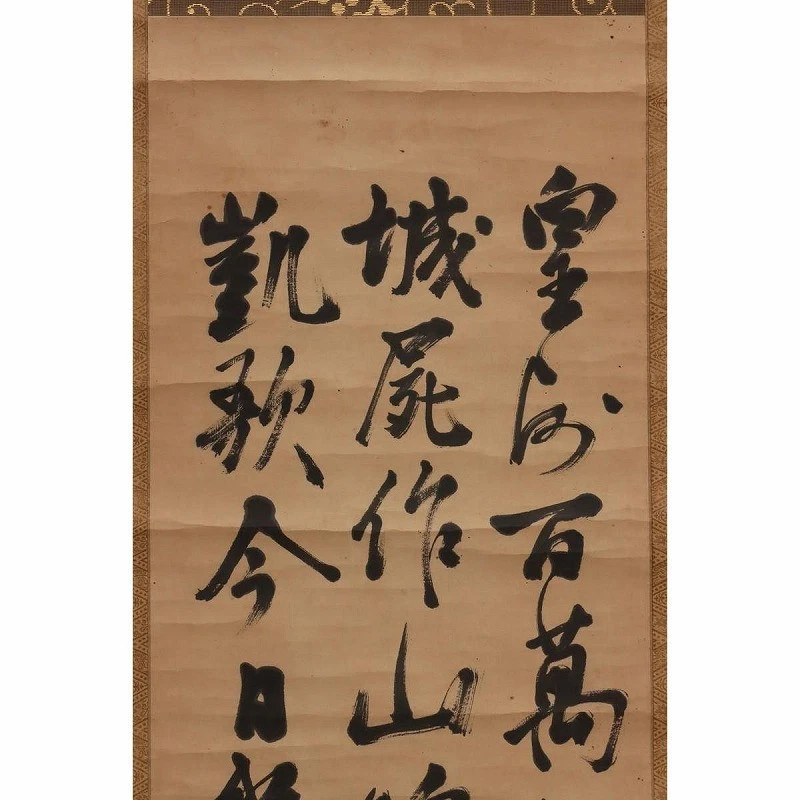 皇州百萬
城屍作山
凱歌今日